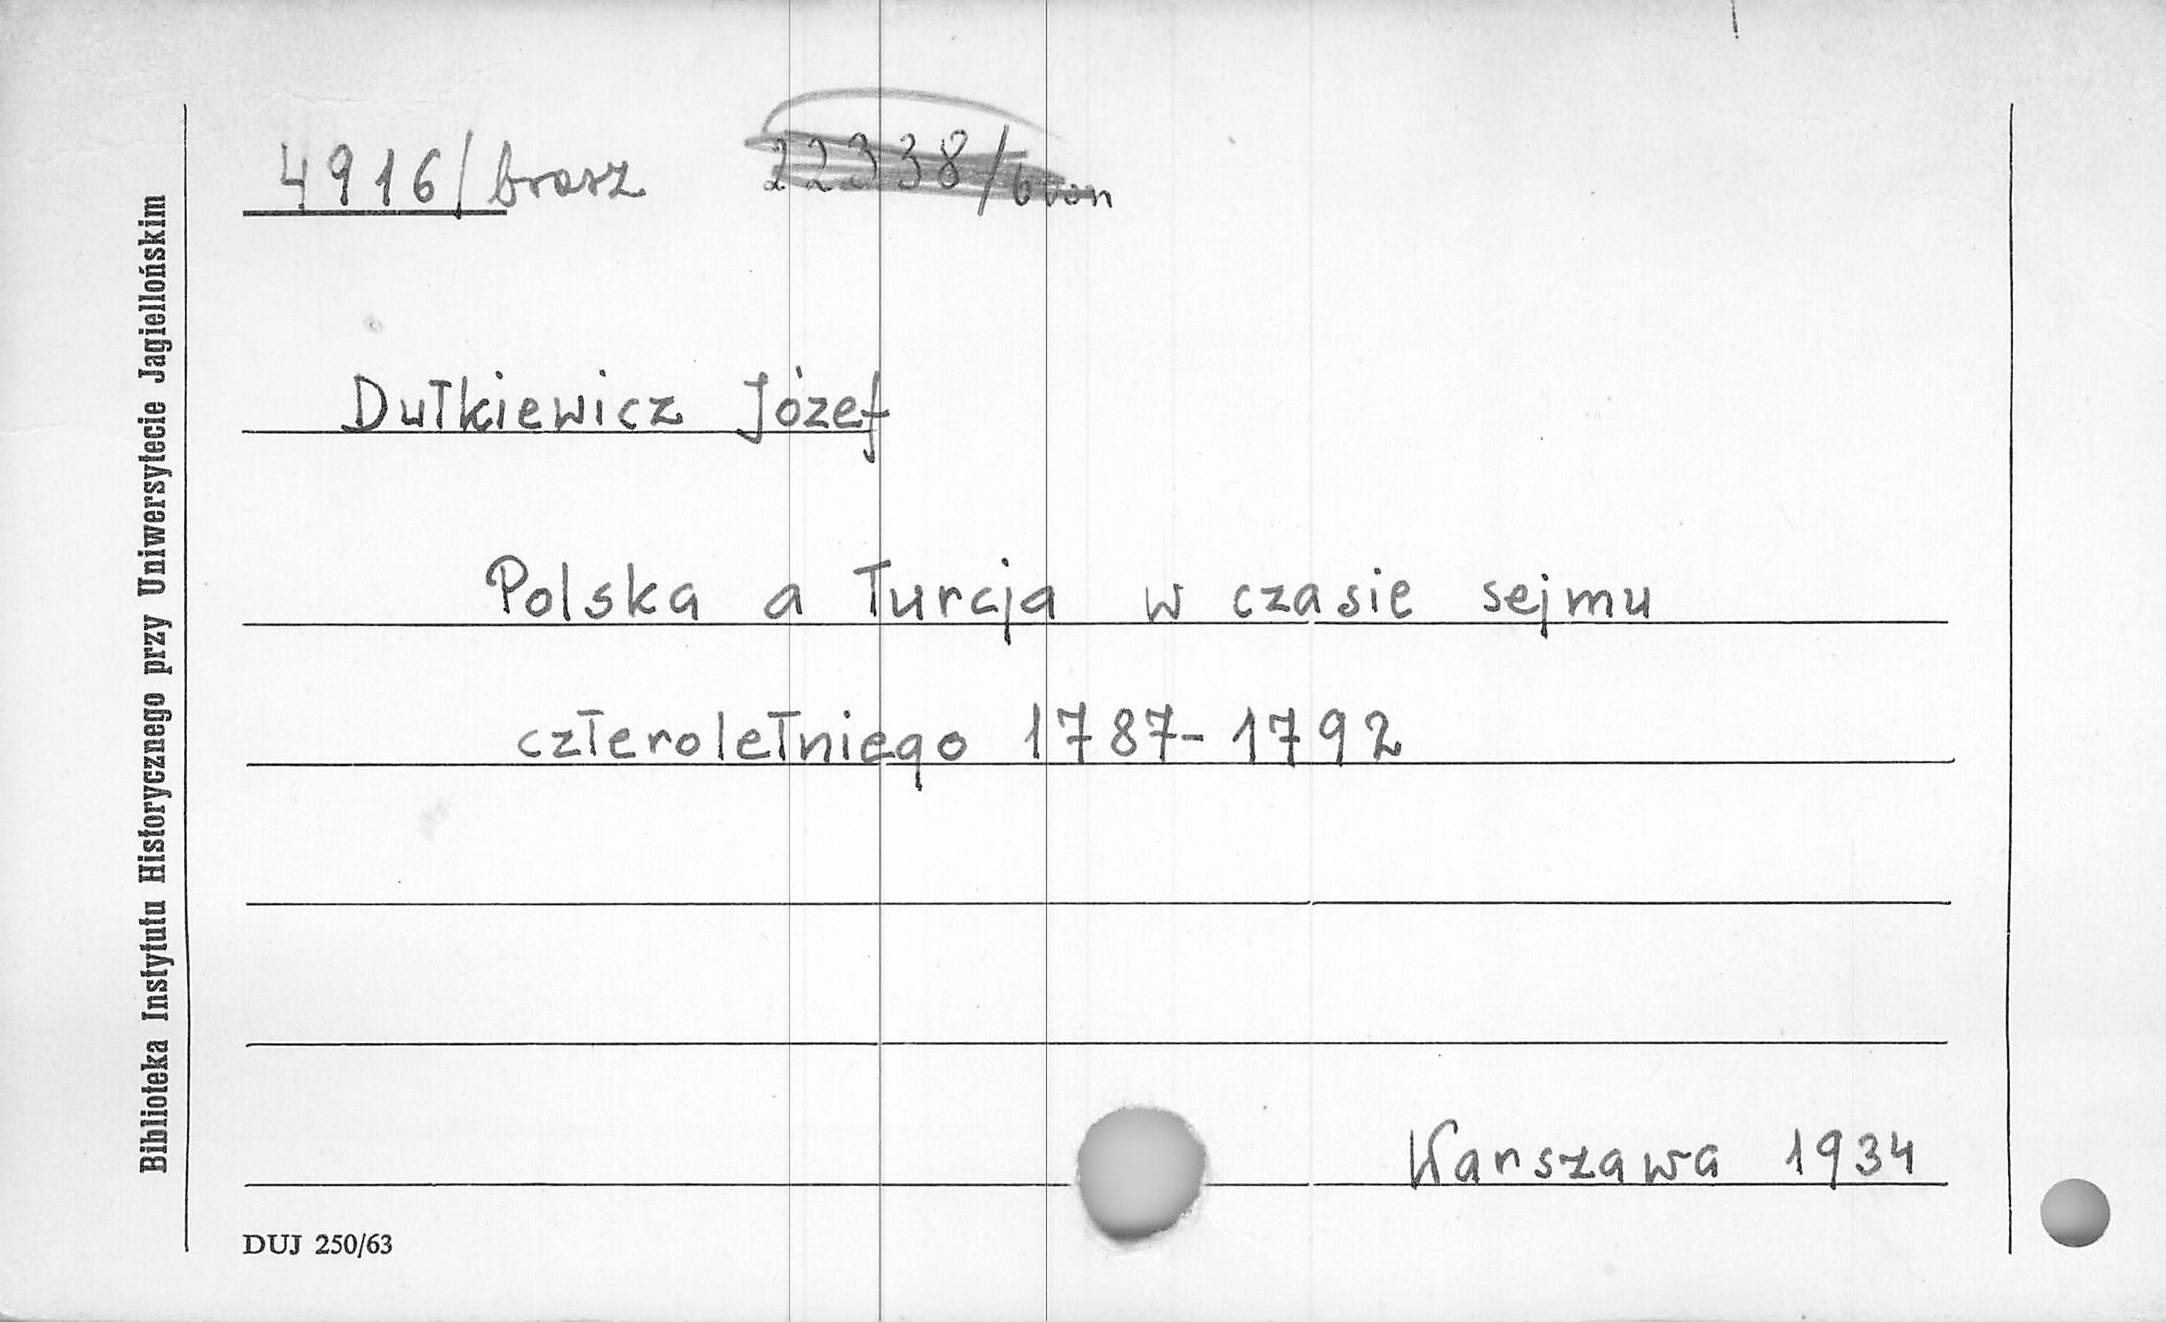 4916/brosz 22338/bron
Dutkiewicz Józef
Polska a Turcja w czasie sejmu
czteroletniego 1787-1792
Warszawa 1934
DUJ 250/63
Biblioteka Instytutu Historycznego przy Uniwersytecie Jagiellońskim